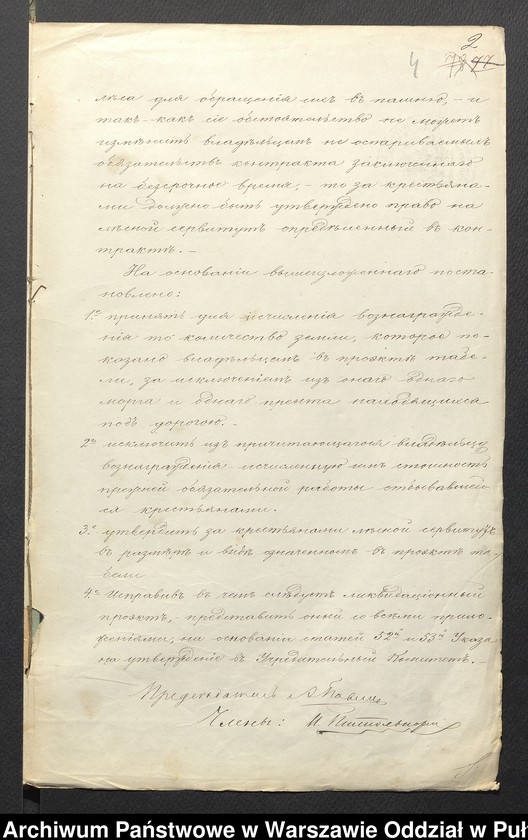 2
4
лѣса для обращенія его въ пашню, - и
такъ-какъ сіе обстоятельство не можетъ
измѣнить владѣльцемъ не оспариваемыхъ
обязательствъ контракта заключеннаго
на безсрочное время, - то за крестьяна-
ми должно быть утверждено право на
лѣсной сервитутъ опредѣленный въ кон-
трактѣ. -
На основаніи вышеизложеннаго поста-
новлено:
1е принять для исчисленія вознагражде-
нія то количество земли, которое по-
казано владѣльцемъ въ проэктѣ табе-
ли, за исключеніемъ изъ онаго одного
морга и одного прента находящихся
подъ дорогою. -
2е исключить изъ причитающагося владѣльцу
вознагражденія исчисленную имъ стоимость
прежней обязательной работы отбывавшей-
ся крестьянами.
3е утвердить за крестьянами лѣсной сервитутъ
въ размѣрѣ и видѣ означенномъ въ проэктѣ та-
бели
4е Исправивъ въ чемъ слѣдуетъ ликвидаціонный
проэктъ, - представить оный со всѣми прило-
женіями, на основаніи статей 52й и 53й Указа
на утвержденіе въ Учредительный Комитетъ. -
Предсѣдатель
Члены:
Archiwum Państwowe w Warszawie Oddział w Puł